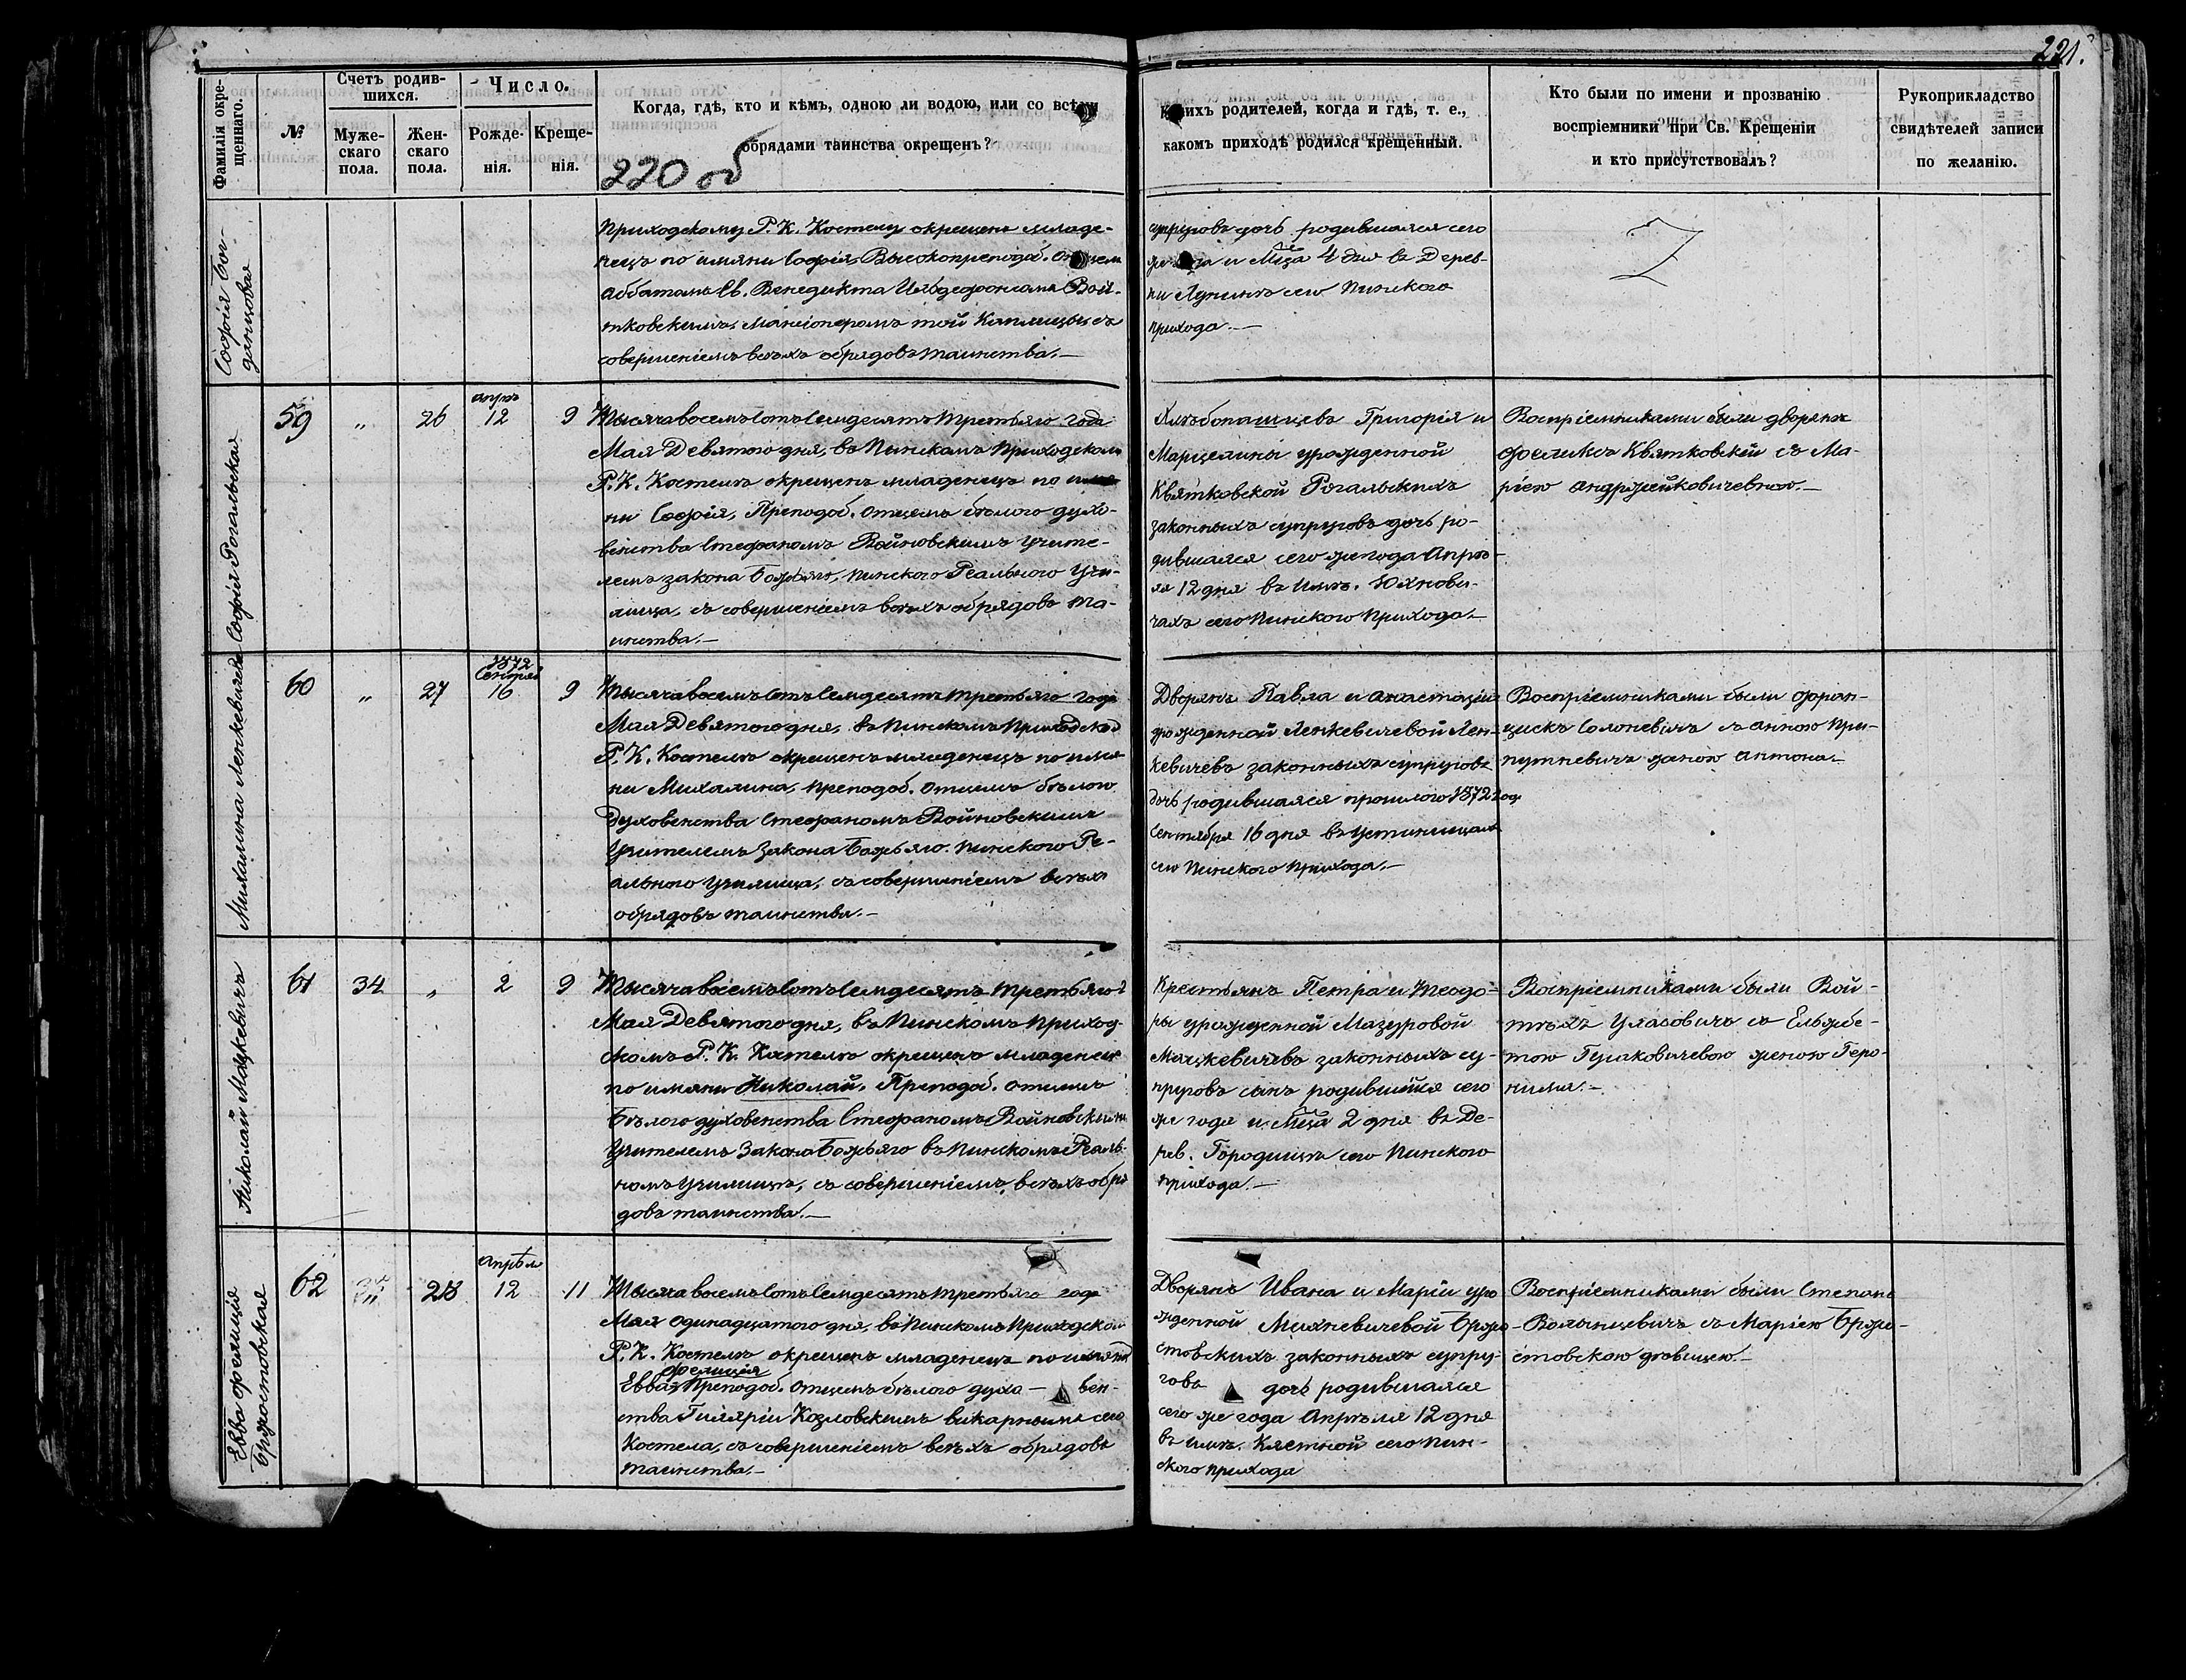 221.
Фамилія окре-
щеннаго.
№
Счетъ родив-
шихся.
Муже-
скаго
пола.
Жен-
скаго
пола.
Число.
Рожде-
нія.
Креще-
нія.
Когда, гдѣ, кто и кѣмъ, одною ли водою, или со всѣми
обрядами таинства окрещенъ?
220 об
Какихъ родителей, когда и гдѣ, т. е.,
какомъ приходѣ родился крещенный.
Кто были по имени и прозванію
воспріемники при Св. Крещеніи
и кто присутствовалъ?
Рукоприкладство
свидѣтелей записи
по желанію.
Софія
Приходскому Р. К. Костелу окрещенъ младе-
нецъ по имяни Софія, Высокопреподоб. Отцемъ
Аббатомъ Св. Бенедикта Ильдефонсомъ Вой-
тковскимъ, Мансіонеромъ той Каплицы съ
совершеніемъ всѣхъ обрядовъ таинства.—
супруговъ дочь родившаяся сего
же года и Мца 4 дня въ Дерев-
ни Лунинѣ сего Пинского
прихода.—
Софія Рогальская
59
"
26
апрѣ
12
9
Тысяча восемъ сотъ семдесятъ третьяго года
Мая Девятого дня, въ Пинскомъ Приходскомъ
Р. К. Костелѣ окрещенъ младенецъ по имя-
ни Софія, Преподоб. Отцемъ бѣлого духо-
венства Стефаномъ Войновскимъ Учите-
лемъ закона Божьяго, Пинского Реального Учи-
лища, съ совершеніемъ всѣхъ обрядовъ та-
инства.—
Хлѣбопашцевъ Григорія и
Марцелины урожденной
Квятковской Рогальскихъ
законныхъ супруговъ дочь ро-
дившаяся сего же года Апрѣ-
ля 12 дня въ Имѣ. Юхнови-
чахъ сего Пинского Прихода.—
Воспріемниками были дворяне
Феликсъ Квятковскій съ Ма-
ріею Андржейковичевною.—
Михалина Ленкевичева
60
"
27
1872
Сентяб
16
9
Тысяча восемъ сотъ семдесятъ третьяго года
Мая Девятого дня, въ Пинскомъ Приходском
Р. К. Костелѣ окрещенъ младенецъ по имя-
ни Михалина, преподоб. Отцемъ бѣлого
Духовенства Стефаномъ Войновскимъ
Учителемъ Закона Божьяго Пинского Ре-
ального Училища, съ совершеніемъ всѣхъ
обрядовъ таинства.—
Дворянъ Павла и Анастасіи
урожденной Ленкевичевой Лен-
кевичевъ законныхъ супруговъ
дочь родившаяся прошлого 1872 год
Сентября 16 дня въ
сего Пинского Прихода.—
Воспріемниками были Фран-
цискъ Солоневичъ съ Анною При-
путневичъ женою Антона.—
Николай Мацкевичъ
61
34
"
2
9
Тысяча восемъ сотъ семдесятъ третьяго г
Мая Девятого дня, въ Пинскомъ Приход-
скомъ Р. К. Костелѣ окрещенъ младенецъ
по имяни Николай, Преподоб. Отцемъ
Бѣлого духовенства Стефаномъ Войновскимъ
Учителемъ Закона Божьяго въ Пинскомъ Реаль-
номъ Училищѣ, съ совершеніемъ всѣхъ обря
довъ таинства.—
Крестьянъ Петра и Теодо-
ры урожденной Мазуровой
Мацкевичевъ законныхъ су-
пруговъ сынъ родившійся сего
же года и Мца 2 дня въ Де-
рев. Городищѣ сего Пинского
прихода.—
Воспріемниками были Вой-
тѣхъ Уласовичъ съ Ельжбе-
тою Гушковичевою женою Геро-
нима.—
Евва Фелиція
Бржостовская
62
28
Апрѣля
12
11
Тысяча восемъ сотъ семдесятъ третьяго года
Мая Одинадцатого дня, въ Пинскомъ Приходском
Р. К. Костелѣ окрещенъ младенецъ по имяни
Фелиція
Евва Преподоб. Отцемъ бѣлого духа — вен-
ства Гиляріи Козловскимъ викарнымъ сего
Костела, съ совершеніемъ всѣхъ обрядовъ
таинства.—
Дворянъ Ивана и Маріи уро
жденной Михневичевой Бржо-
стовскихъ законныхъ супру-
говъ дочь родившаяся
сего же года Апрѣля 12 дня
въ имѣ. Клетной сего Пин-
ского прихода
Воспріемниками были Степанъ
Волынцевичъ съ Маріею Бржо-
стовскою дѣвицею.—